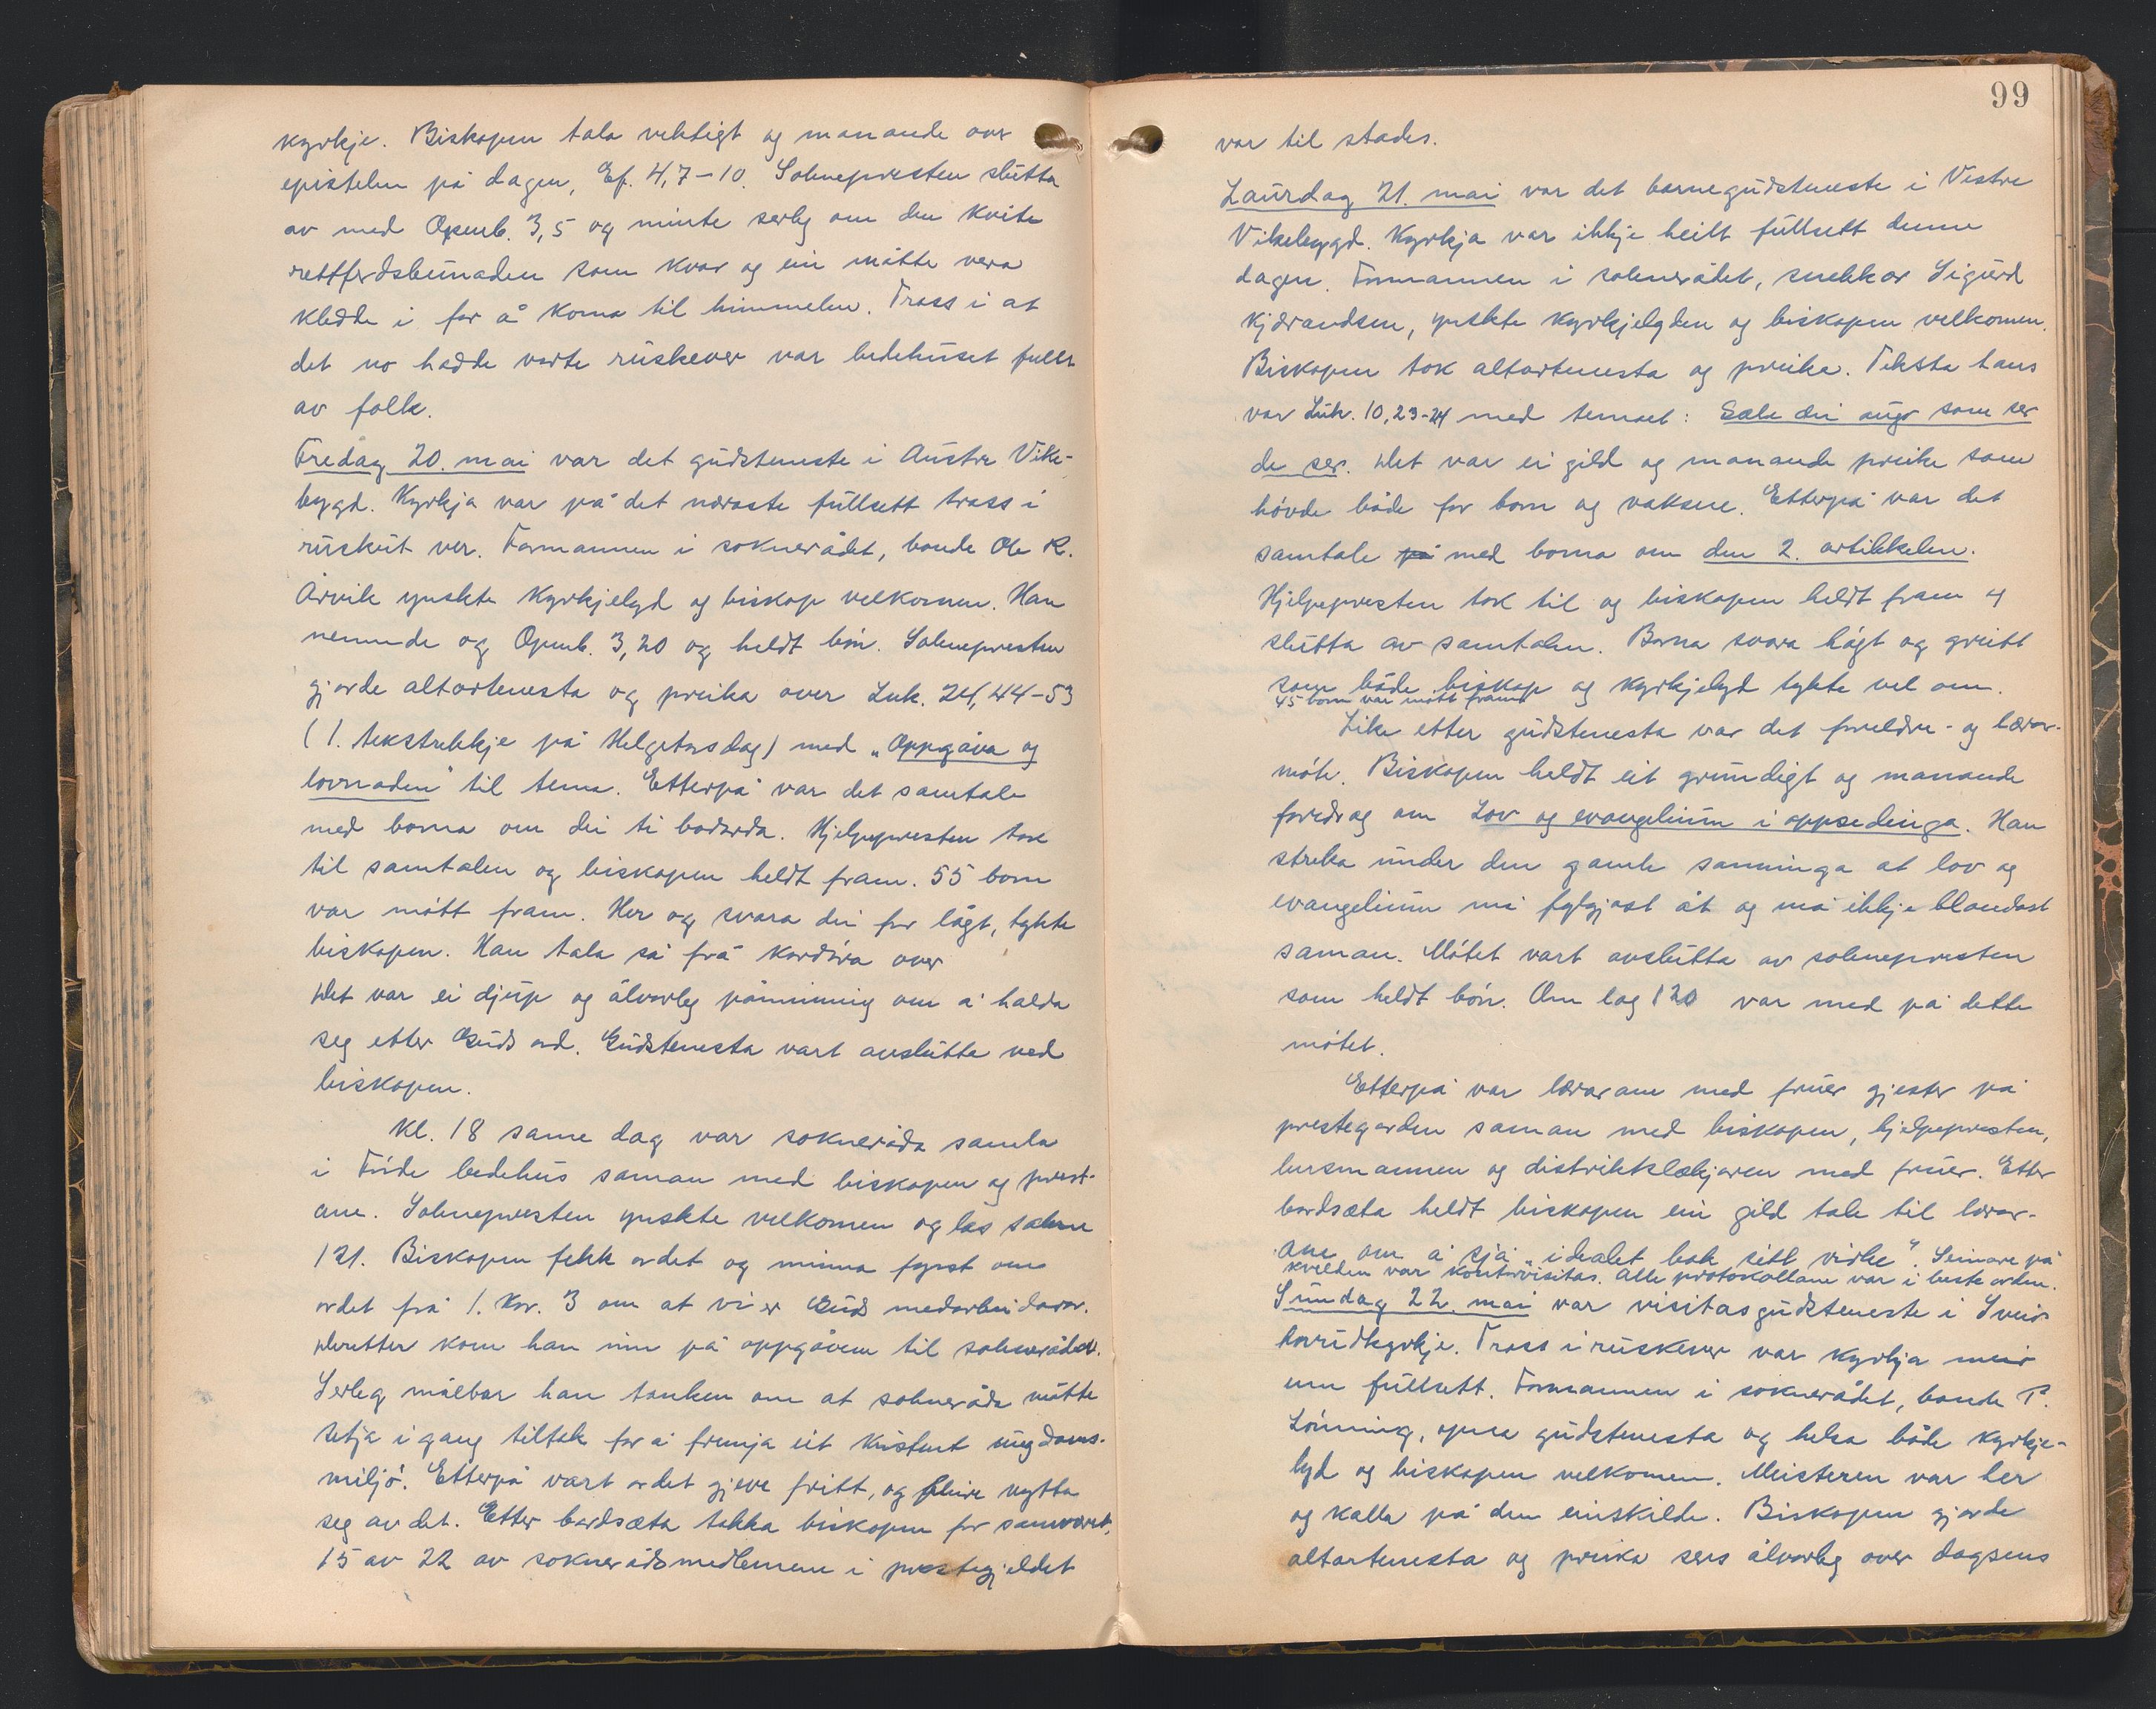 kyrkje. Biskopen tala vektigt og manande over
epistelen på dagen, Ef. 4,7-10. Soknepresten slutta
av med Openb. 3,5 og minte serleg om den kvite
rettferdsbunaden som kvar og ein måtte vera
kledde i for å koma til himmelen. Trass i at
det no hadde vorte ruskever var bedehuset fullt
av folk.
Fredag 20. mai var det gudsteneste i Austre Vike-
bygd. Kyrkja var på det næraste fullsett trass i
ruskut ver. Formannen i soknerådet, bonde Ole K.
Årvik ynskte kyrkjelyd og biskop velkomen. Han
nemnde og Openb. 3,20 og heldt bøn. Soknepresten
gjorde altartenesta og preika over Luk. 24,44-53
(1. tekstrekkje på Helgetorsdag) med „Oppgåva og
lovnaden" til tema. Etterpå var det samtale
med borna om dei ti bodorda. Hjelpepresten tok
til samtalen og biskopen heldt fram. 55 born
var møtt fram. Her og svara dei for lågt, tykte
biskopen. Han tala så frå kordøra over
Det var ei djup og ålvorleg påminning om å halda
seg etter Guds ord. Gudstenesta vart avslutta ved
biskopen.
Kl. 18 same dag var sokneråda samla
i Førde bedehus saman med biskopen og prest-
ane. Soknepresten ynskte velkomen og las salme
121. Biskopen fekk ordet og minna fyrst om
ordet frå 1. Kor. 3 om at vi er Guds medarbeidarar.
Deretter kom han inn på oppgåvene til soknerådet.
Serleg målbar han tanken om at sokneråda måtte
setja i gang tiltak for å fremja eit kristent ungdoms-
miljø. Etterpå vart ordet gjeve fritt, og fleire nytta
seg av det. Etter bordsæta takka biskopen for samværet.
15 av 22 av soknerådsmedlemene i prestegjeldet
99
var til stades.
Laurdag 21. mai var det barnegudsteneste i Vestre
Vikebygd. Kyrkja var ikkje heilt fullsett denne
dagen. Formannen i soknerådet, snekkar Sigurd
Kjærandsen, ynskte kyrkjelyden og biskopen velkomen.
Biskopen tok altartenesta og preika. Teksta hans
var Luk. 10,23-24 med temaet: Sæle dei augo som ser
de ser. Det var ei gild og manande preike som
høvde både for born og vaksne. Etterpå var det
samtale på med borna om den 2. artikkelen.
Hjelpepresten tok til og biskopen heldt fram og
slutta av samtalen. Borna svara høgt og greitt
som både biskop og kyrkjelyd tykte vel om.
45 born var møtt fram.
Like etter gudstenesta var det foreldre- og lærar-
møte. Biskopen heldt eit grundigt og manande
foredrag om Lov og evangelium i oppsedinga. Han
streka under den gamle sanninga at lov og
evangelium må fylgjast åt og må ikkje blandast
saman. Møtet vart avslutta av soknepresten
som heldt bøn. Om lag 120 var med på dette
møtet.
Etterpå var lærarane med fruer gjester på
prestegarden saman med biskopen, hjelpepresten,
lensmannen og distriktslækjaren med fruer. Etter
bordsæta heldt biskopen ein gild tale til lærar-
ane om å sjå „idealet bak sitt virke". Seinare på
kvelden var kontorvisitas. Alle protokollane var i beste orden.
Sundag 22. mai var visitasgudsteneste i Sveio
hovudkyrkje. Trass i ruskever var kyrkja meir
enn fullsett. Formannen i soknerådet, bonde P.
Lønning, opna gudstenesta og helsa både kyrkje-
lyd og biskopen velkomen. Meisteren var her
og kalla på den einskilde. Biskopen gjorde
altartenesta og preika sers ålvorleg over dagsens